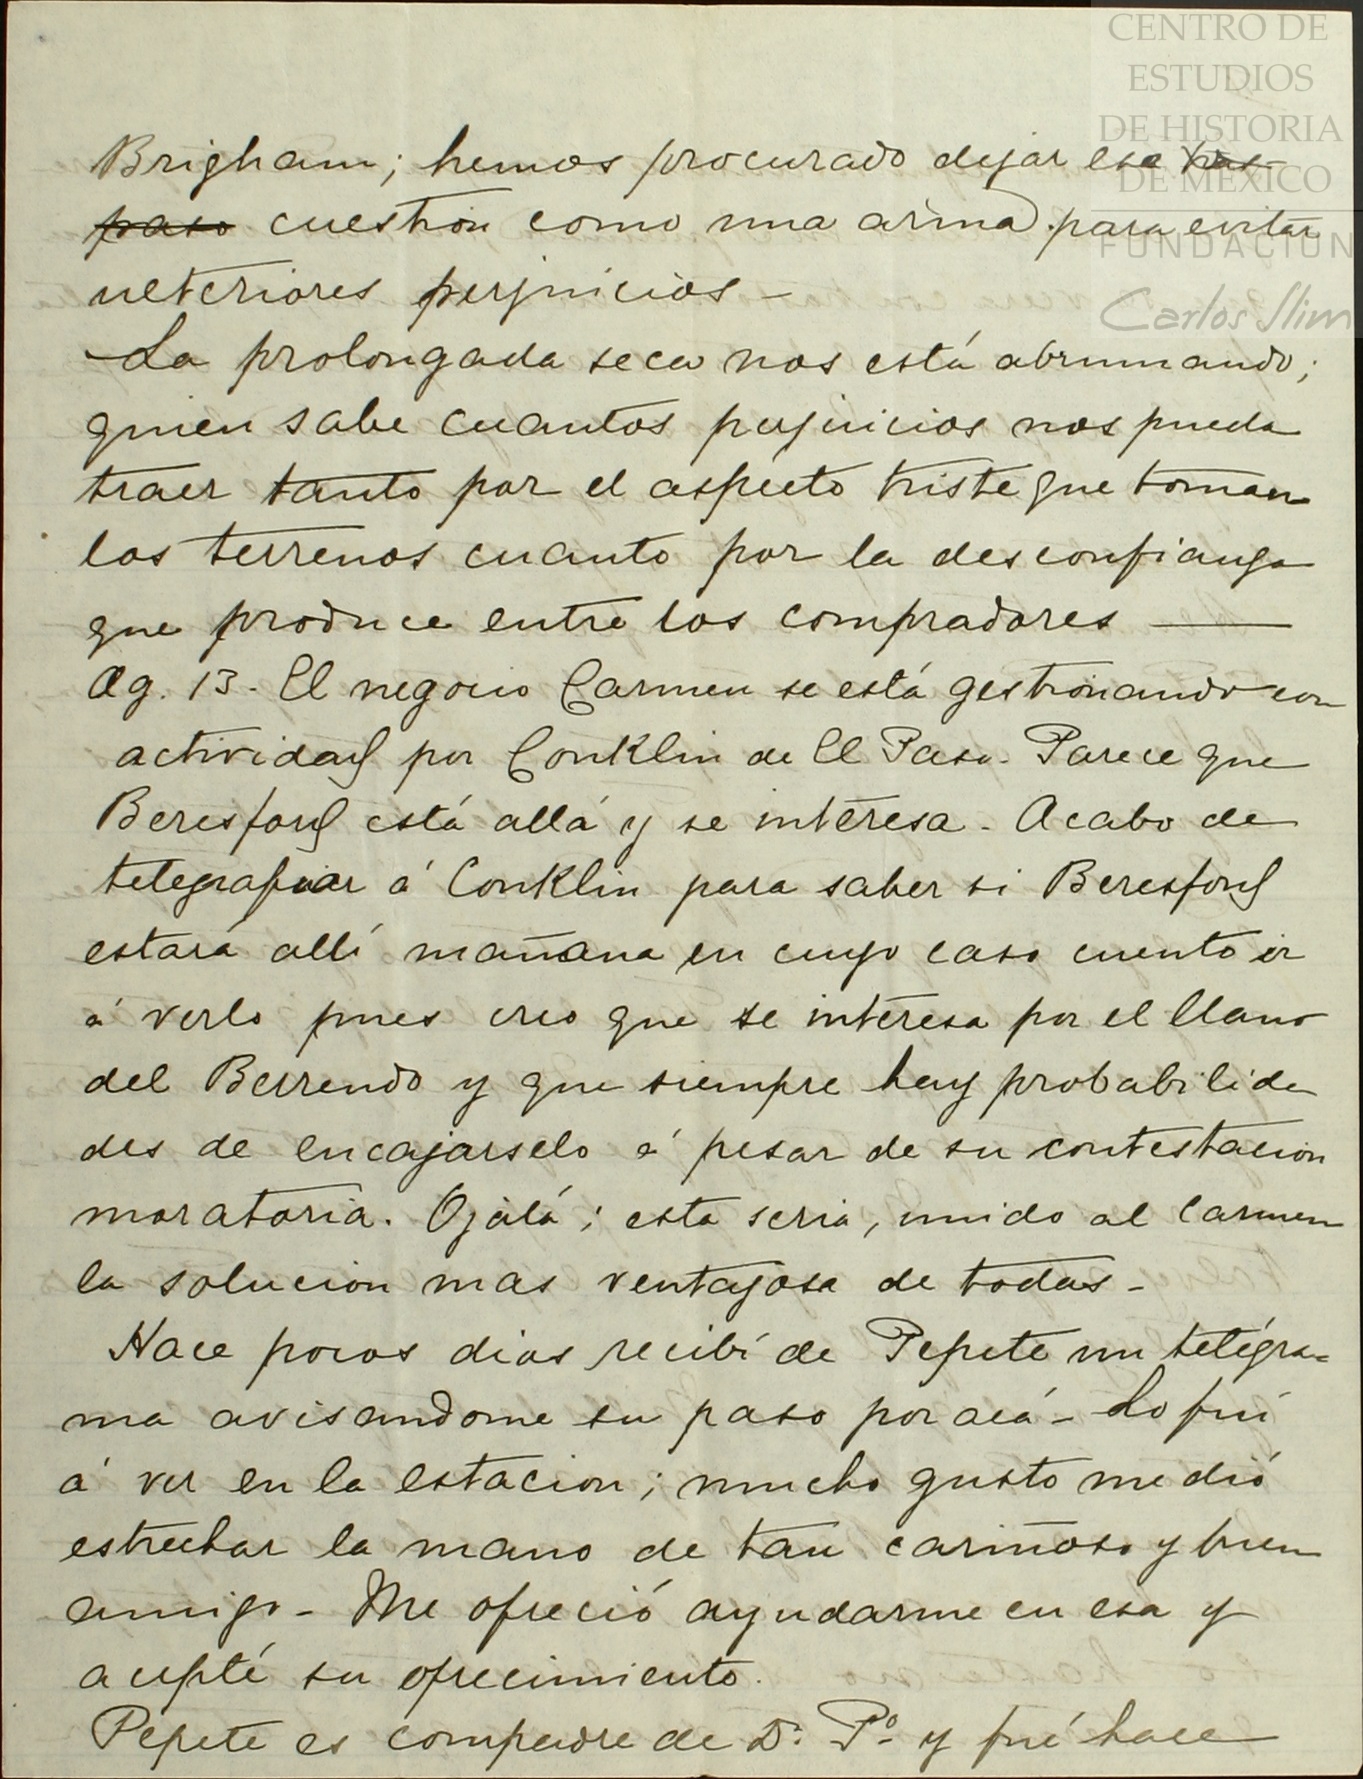 CENTRO DE
ESTUDIOS
DE HISTORIA
DE MEXICO
FUNDACION
Carlos Slim
Brigham; hemos procurado dejar esa tras-
paso cuestion como una arma para evitar
ulteriores perjuicios -
La prolongada seca nos está abrumando;
quien sabe cuantos perjuicios nos pueda
traer tanto por el aspecto triste que toman
los terrenos cuanto por la desconfianza
que produce entre los compradores —
Ag. 13 - El negocio Carmen se está gestionando con
actividad por Conklin de El Paso. Parece que
Beresford está allá y se interesa - Acabo de
telegrafiar á Conklin para saber si Beresford
estará allí mañana en cuyo caso cuento ir
á verlo pues creo que se interesa por el llano
del Berrendo y que siempre hay probabilida
des de encajarselo á pesar de su contestacion
moratoria. Ojalá; esta seria, unido al Carmen
la solucion mas ventajosa de todas -
Hace pocos dias recibí de Pepete un telégra=
ma avisandome su paso por acá - Lo fuí
á ver en la estacion; mucho gusto me dió
estrechar la mano de tan cariñoso y buen
amigo - Me ofreció ayudarme en esa y
acepté su ofrecimiento.
Pepete es compadre de D. Pº y fué hace